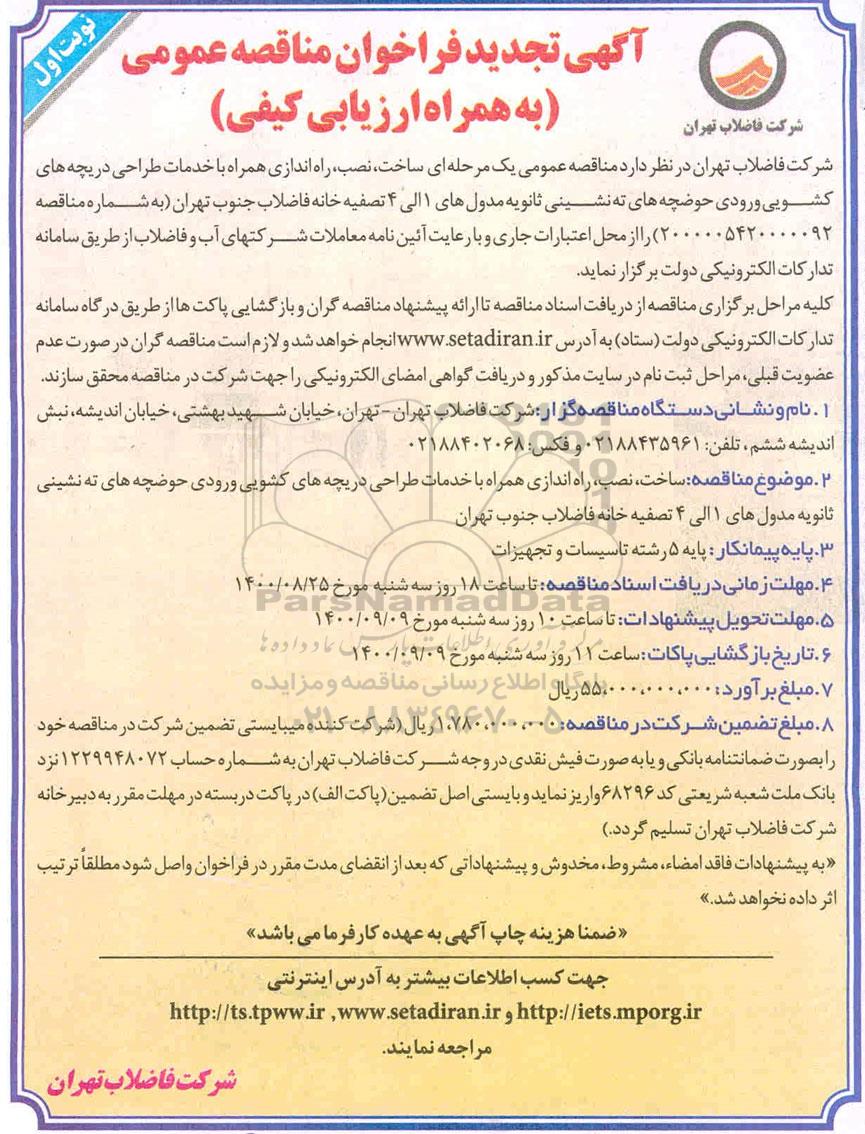 نوبت اول
آگهی تجدید فراخوان مناقصه عمومی
(به همراه ارزیابی کیفی)
شرکت فاضلاب تهران
شرکت فاضلاب تهران در نظر دارد مناقصه عمومی یک مرحله ای ساخت، نصب، راه اندازی همراه با خدمات طراحی دریچه های
کشویی ورودی حوضچه های ته نشینی ثانویه مدول های ۱ الی ۴ تصفیه خانه فاضلاب جنوب تهران (به شماره مناقصه
۲۰۰۰۰۰۵۴۲۰۰۰۰۰۹۲) را از محل اعتبارات جاری و با رعایت آئین نامه معاملات شرکتهای آب و فاضلاب از طریق سامانه
تدارکات الکترونیکی دولت برگزار نماید.
کلیه مراحل برگزاری مناقصه از دریافت اسناد مناقصه تا ارائه پیشنهاد مناقصه گران و بازگشایی پاکت ها از طریق درگاه سامانه
تدارکات الکترونیکی دولت (ستاد) به آدرس www.setadiran.ir انجام خواهد شد و لازم است مناقصه گران در صورت عدم
عضویت قبلی، مراحل ثبت نام در سایت مذکور و دریافت گواهی امضای الکترونیکی را جهت شرکت در مناقصه محقق سازند.
۱. نام و نشانی دستگاه مناقصه گزار: شرکت فاضلاب تهران - تهران، خیابان شهید بهشتی، خیابان اندیشه، نبش
اندیشه ششم، تلفن: ۰۲۱۸۸۴۳۵۹۶۱ و فکس: ۰۲۱۸۸۴۰۲۰۶۸
۲. موضوع مناقصه: ساخت، نصب، راه اندازی همراه با خدمات طراحی دریچه های کشویی ورودی حوضچه های ته نشینی
ثانویه مدول های ۱ الی ۴ تصفیه خانه فاضلاب جنوب تهران
۳. پایه پیمانکار: پایه ۵ رشته تاسیسات و تجهیزات
۴. مهلت زمانی دریافت اسناد مناقصه: تا ساعت ۱۸ روز سه شنبه مورخ ۱۴۰۰/۰۸/۲۵
ParsNamadData
۵. مهلت تحویل پیشنهادات: تا ساعت ۱۰ روز سه شنبه مورخ ۱۴۰۰/۰۹/۰۹
۶. تاریخ بازگشایی پاکات: ساعت ۱۱ روز سه شنبه مورخ ۱۴۰۰/۰۹/۰۹
پایگاه اطلاع رسانی مناقصه و مزایده
۷. مبلغ برآورد: ۵۵،۰۰۰،۰۰۰،۰۰۰ ریال
۰۲۱-۸۸۳۴۹۶۷۰-۵
۸. مبلغ تضمین شرکت در مناقصه: ۱،۷۸۰،۰۰۰،۰۰۰ ریال (شرکت کننده میبایستی تضمین شرکت در مناقصه خود
را بصورت ضمانتنامه بانکی و یا به صورت فیش نقدی در وجه شرکت فاضلاب تهران به شماره حساب ۱۲۲۹۹۴۸۰۷۲ نزد
بانک ملت شعبه شریعتی کد ۶۸۲۹۶ واریز نماید و بایستی اصل تضمین (پاکت الف) در پاکت دربسته در مهلت مقرر به دبیرخانه
شرکت فاضلاب تهران تسلیم گردد.)
«به پیشنهادات فاقد امضاء، مشروط، مخدوش و پیشنهاداتی که بعد از انقضای مدت مقرر در فراخوان واصل شود مطلقاً ترتیب
اثر داده نخواهد شد.»
«ضمنا هزینه چاپ آگهی به عهده کارفرما می باشد»
جهت کسب اطلاعات بیشتر به آدرس اینترنتی
http://iets.mporg.ir و www.setadiran.ir , http://ts.tpww.ir
مراجعه نمایند.
شرکت فاضلاب تهران